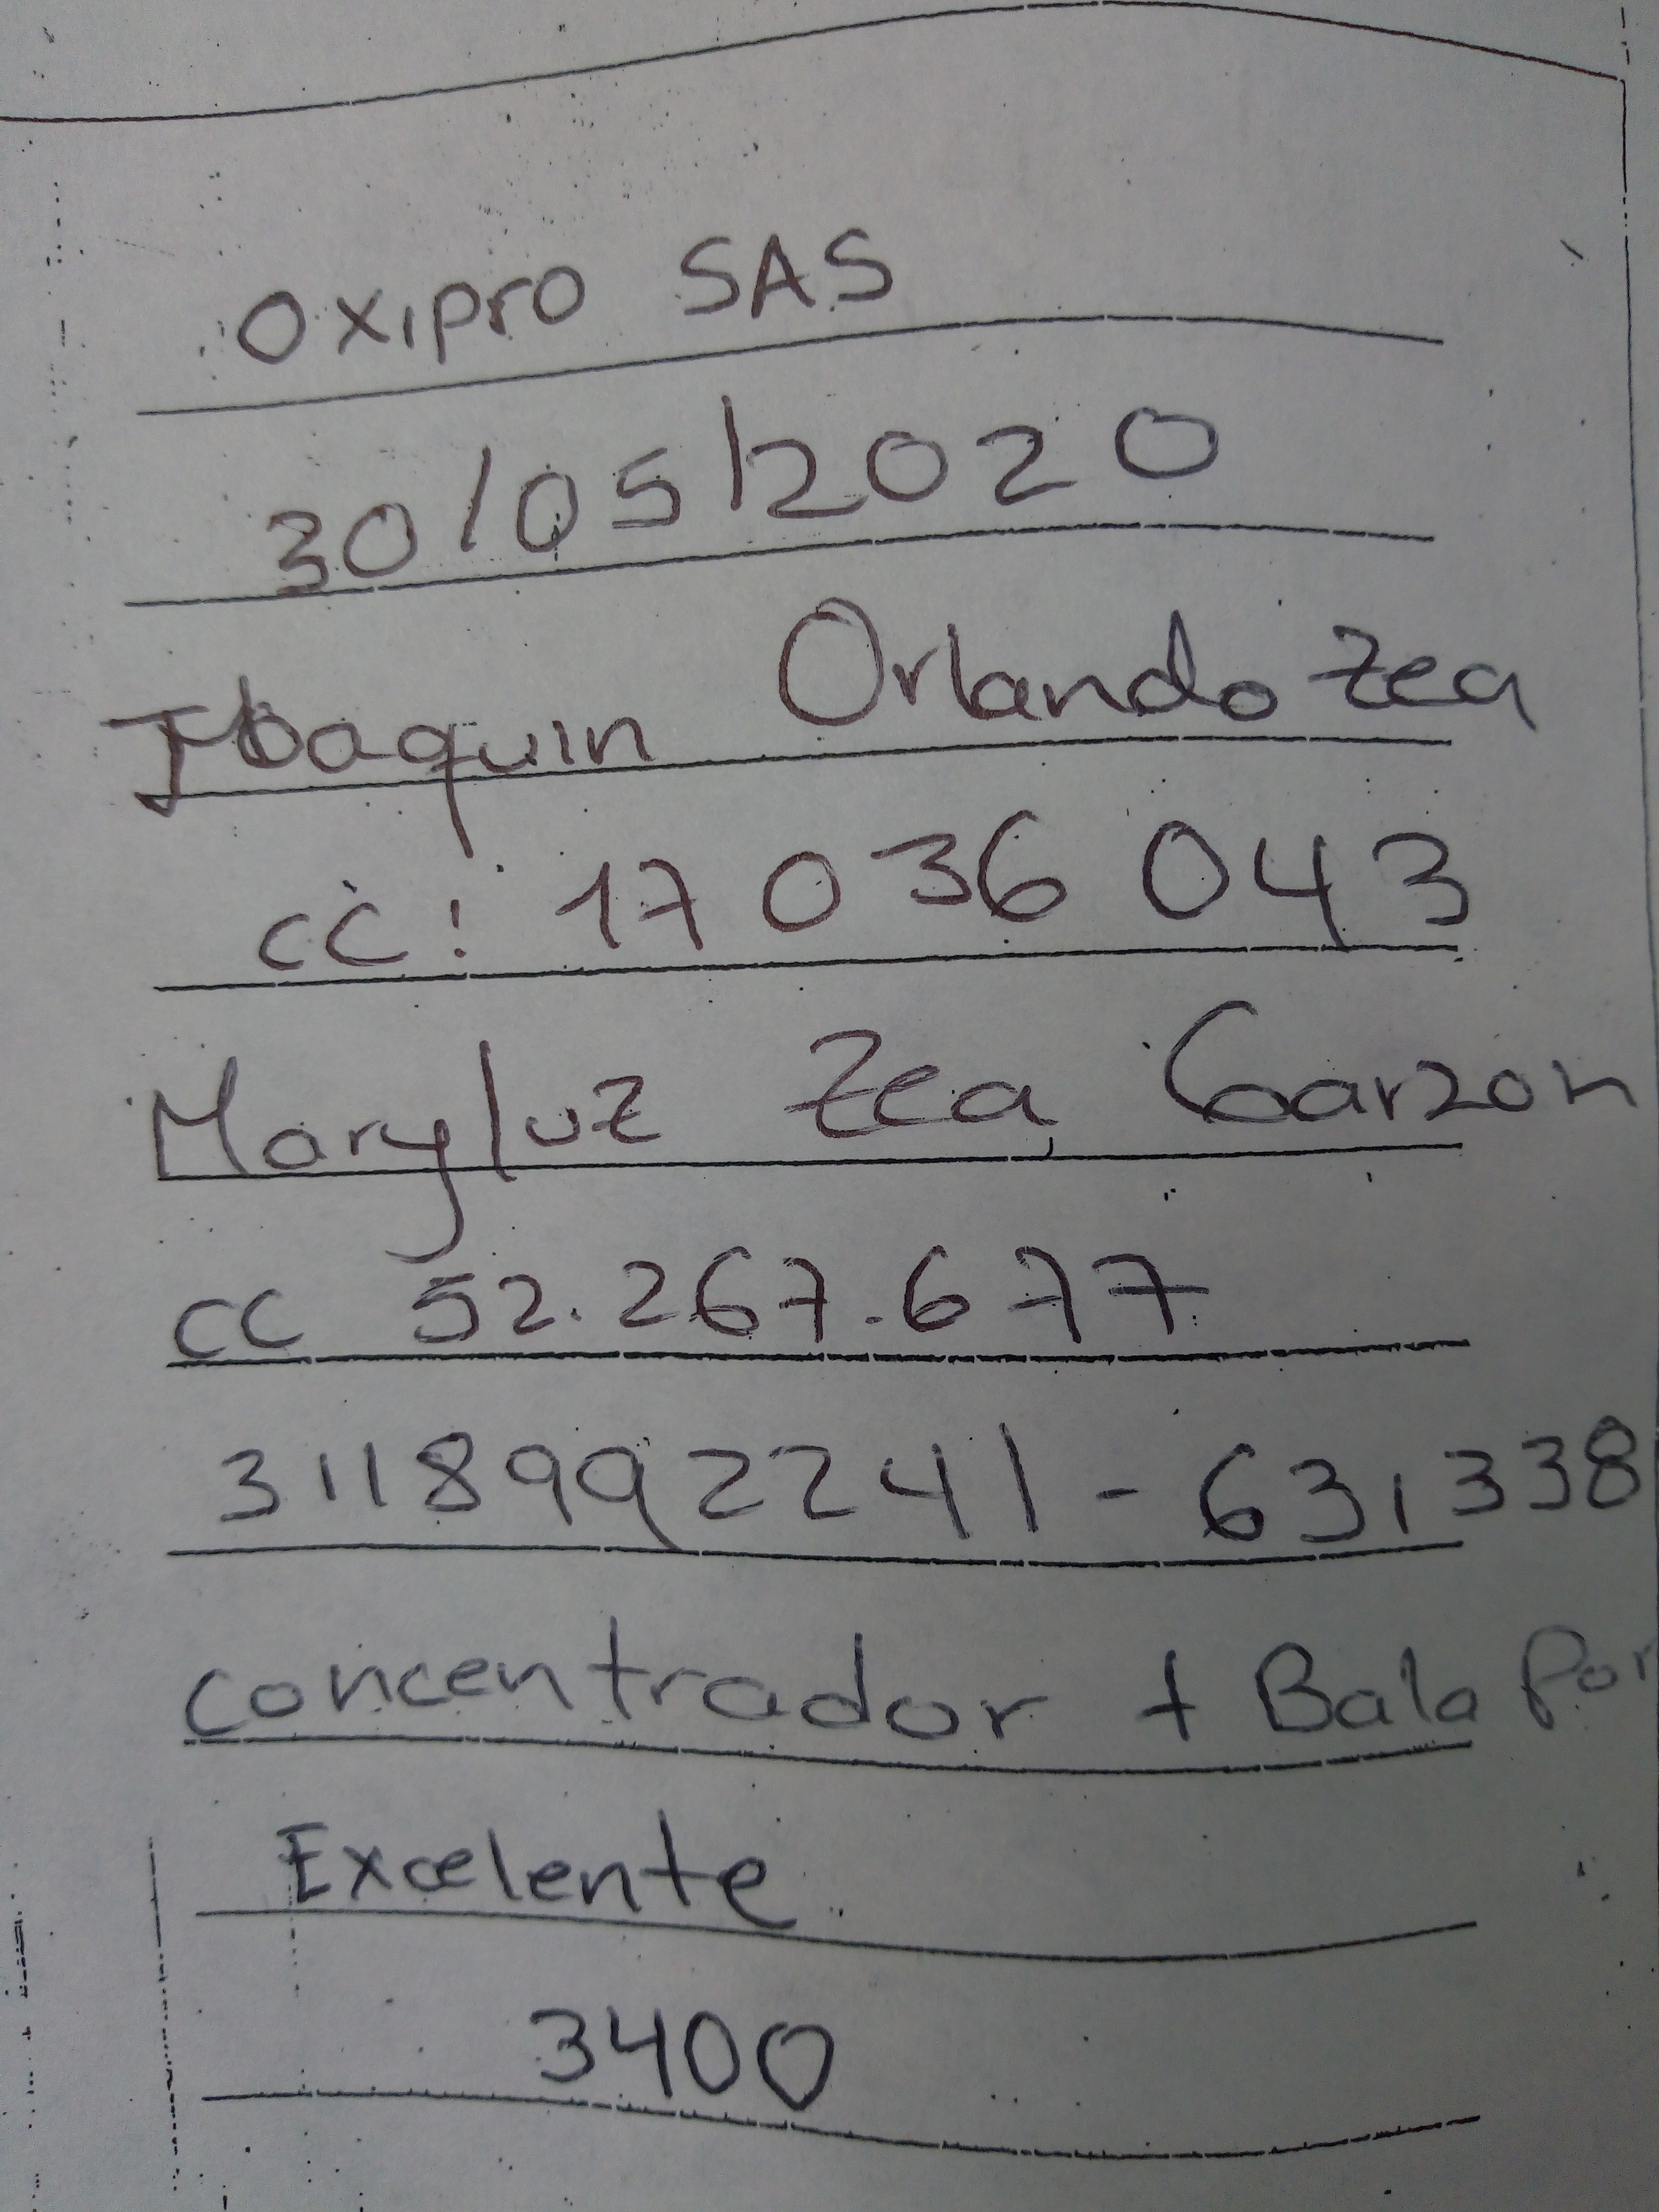 Oxipro SAS
30/05/2020
Joaquin Orlando Zea
cc: 17036043
Maryluz Zea Garzon
cc 52.267.677
3118992241 - 631338
concentrador + Bala Por
Excelente
3400